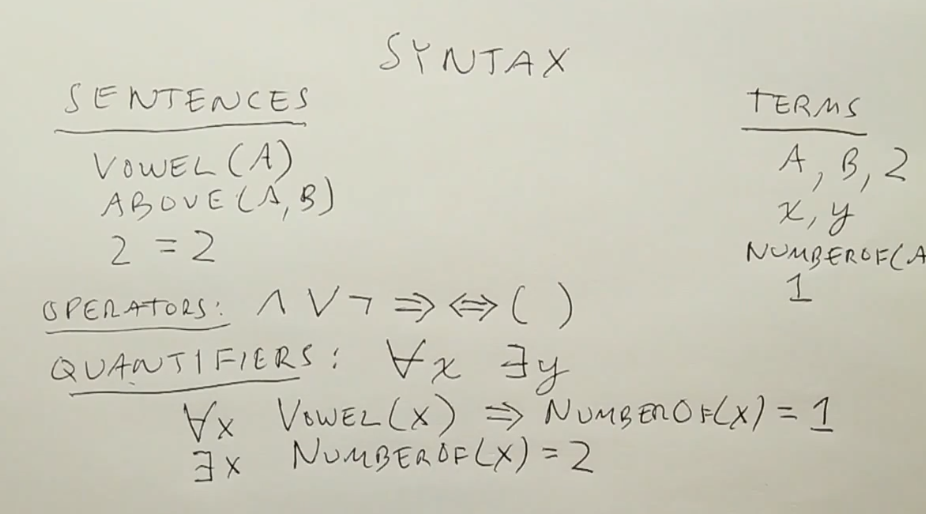 SYNTAX
SENTENCES
VOWEL(A)
ABOVE(A,B)
2 = 2
TERMS
A, B, 2
x, y
NUMBEROF(A
1
OPERATORS: ∧ ∨ ¬ ⇒ ⇔ ( )
QUANTIFIERS: ∀x ∃y
∀x VOWEL(X) ⇒ NUMBEROF(X) = 1
∃x NUMBEROF(X) = 2